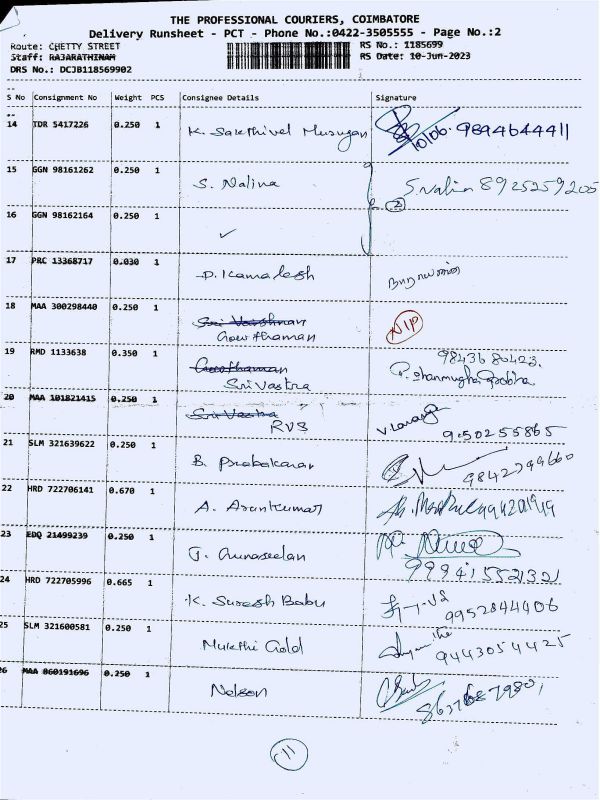 THE PROFESSIONAL COURIERS, COIMBATORE
Delivery Runsheet - PCT - Phone No.:0422-3505555 - Page No.:2
Route: CHETTY STREET RS No.: 1185699
Staff: RAJARATHINAM RS Date: 10-Jun-2023
DRS No.: DCJB118569902
S No Consignment No Weight PCS Consignee Details Signature
14 TDR 5417226 0.250 1 K. Sakthivel Murugan 10/06. 9894644411
15 GGN 98161262 0.250 1 S. Nalina S. Nalin 8925259205
16 GGN 98162164 0.250 1 ✓ 2
17 PRC 13368717 0.030 1 D. Kamalesh
18 MAA 300298440 0.250 1 Sri Varshnan N/P
Gowthaman
19 RMD 1133638 0.350 1 Gowthaman 9843680423.
Srivastra P. Shanmugha
20 MAA 101821415 0.250 1 Sri Vastra
RVS 9150255865
21 SLM 321639622 0.250 1 B. Prabakaran 9842799660
22 HRD 722706141 0.670 1 A. Arunkumar
23 EDQ 21499239 0.250 1 J. Gunaseelan
9994155232
24 HRD 722705996 0.665 1 K. Suresh Babu 9952844406
25 SLM 321600581 0.250 1 Mukthi Gold 9443054425
26 MAA 860191696 0.250 1 Nelson
11